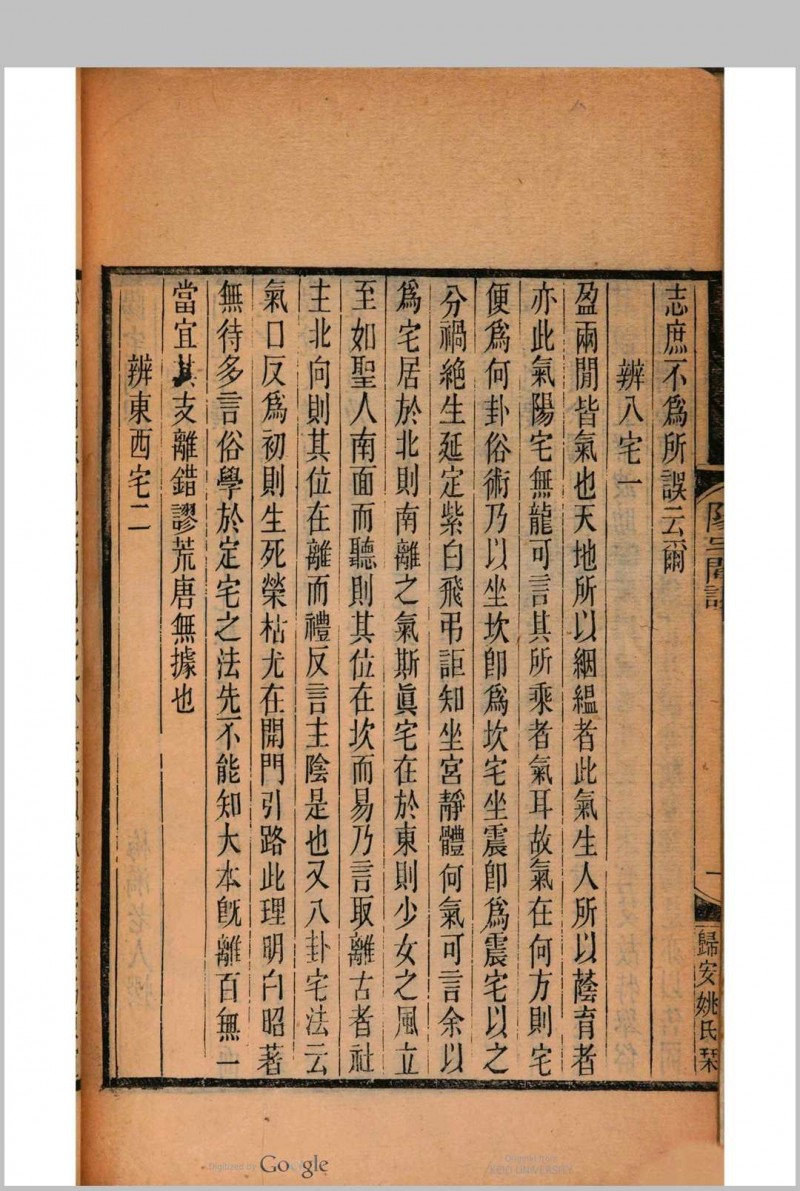 志庶不為所誤云爾
辨八宅一
盈兩閒皆氣也天地所以絪縕者此氣生人所以蔭育者
亦此氣陽宅無龍可言其所乘者氣耳故氣在何方則宅
便為何卦俗術乃以坐坎卽為坎宅坐震卽為震宅以之
分禍絶生延定紫白飛弔詎知坐宮靜體何氣可言余以
為宅居於北則南離之氣斯眞宅在於東則少女之風立
至如聖人南面而聽則其位在坎而易乃言取離古者社
主北向則其位在離而禮反言主陰是也又八卦宅法云
氣口反為初則生死榮枯尤在開門引路此理明白昭著
無待多言俗學於定宅之法先不能知大本旣離百無一
當宜其支離錯謬荒唐無據也
辨東西宅二
歸安姚氏栞
Digitized by Google
Original from